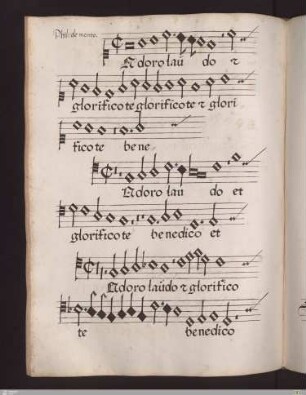 Phil: de monte.
Adoro lau do &
glorifico te glorifico te & glori
fico te bene-
Adoro lau do et
glorifico te benedico et
Adoro laudo & glorifico
te benedico